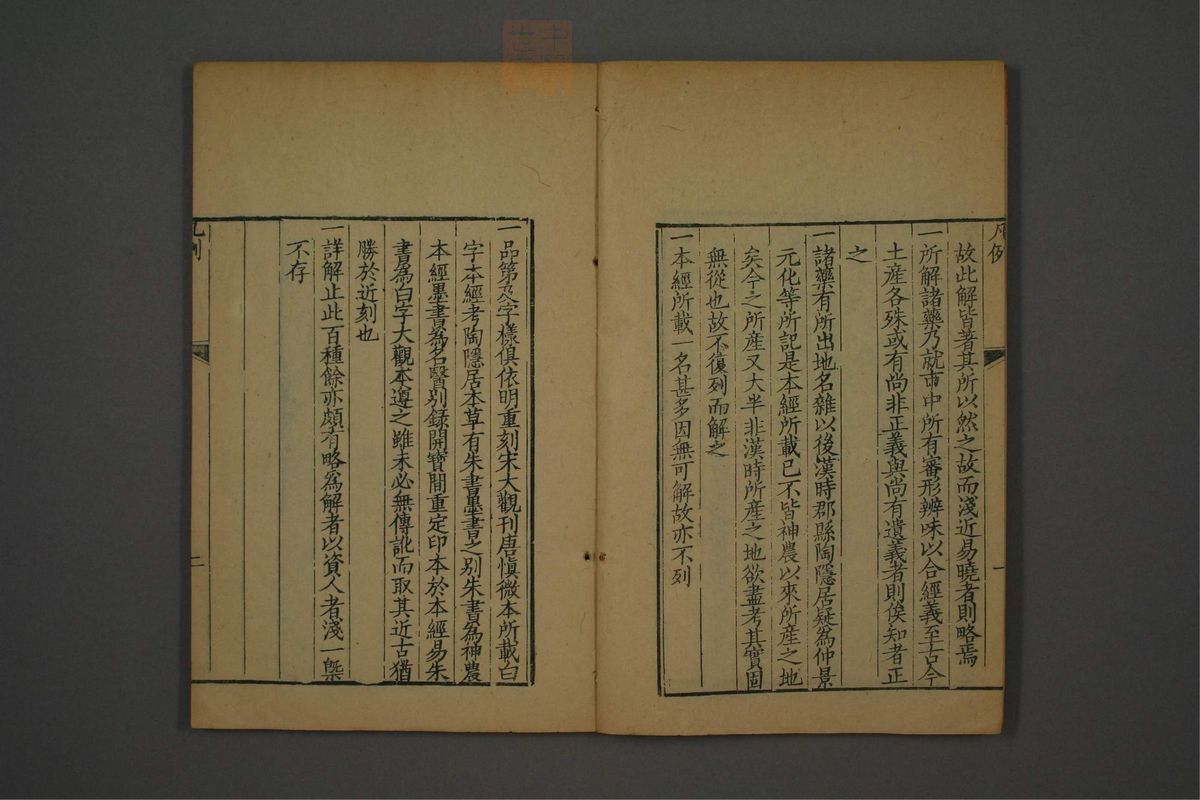 凡例
一
故此解皆著其所以然之故而淺近易曉者則略焉
一所解諸藥乃就市中所有審形辨味以合經義至古今
土産各殊或有尚非正義與尚有遺義者則俟知者正
之
一諸藥有所出地名雜以後漢時郡縣陶隱居疑為仲景
元化等所記是本經所載已不皆神農以來所産之地
矣今之所産又大半非漢時所産之地欲盡考其實固
無從也故不復列而解之
一本經所載一名甚多因無可解故亦不列
一品第及字樣俱依明重刻宋大觀刊唐愼微本所載白
字本經考陶隱居本草有朱書墨書之别朱書為神農
本經墨書為名醫别錄開寳間重定印本於本經易朱
書為白字大觀本遵之雖未必無傳訛而取其近古猶
勝於近刻也
一詳解止此百種餘亦頗有略為解者以資人者淺一槩
不存
凡例
二